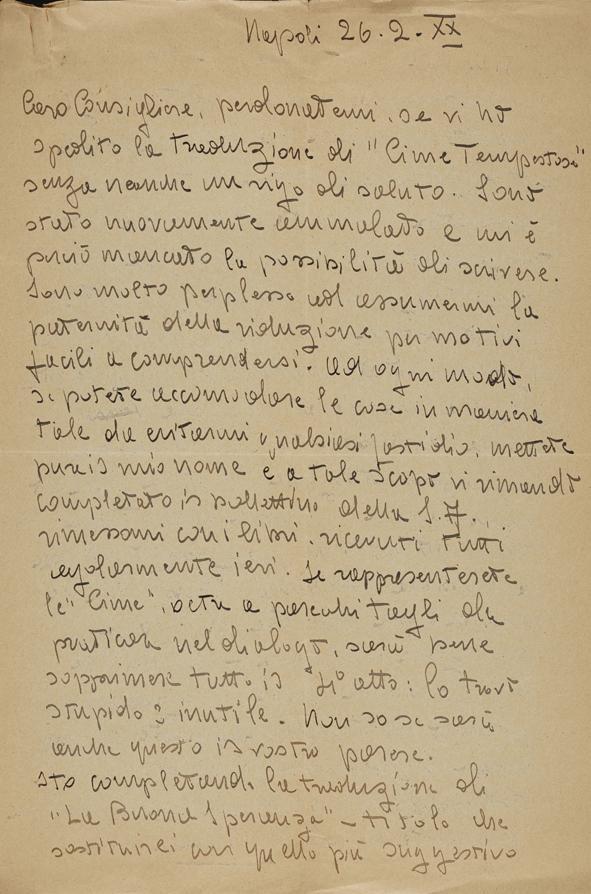 Napoli 26.2.XX
Caro Consigliere, perdonatemi, se vi ho
spedito la traduzione di "Cime Tempestose"
senza neanche un rigo di saluto. Sono
stato nuovamente ammalato e mi è
perciò mancato la possibilità di scrivere.
Sono molto perplesso ad assumermi la
paternità della riduzione per motivi
facili a comprendersi. Ad ogni modo,
se potete accomodare le cose in maniera
tale da evitarmi qualsiasi fastidio, mettete
pure il mio nome e a tale scopo vi rimando
completato il bollettino della S.I.
rimessomi con i libri, ricevuti tutti
regolarmente ieri. Se rappresenterete
le "Cime", oltre a parecchi tagli da
praticare nel dialogo, sarà bene
sopprimere tutto il atto: lo trovo
stupido e inutile. Non so se sarà
anche questo il vostro parere.
Sto completando la traduzione di
"La Buona Speranza" – titolo che
sostituirei con quello più suggestivo